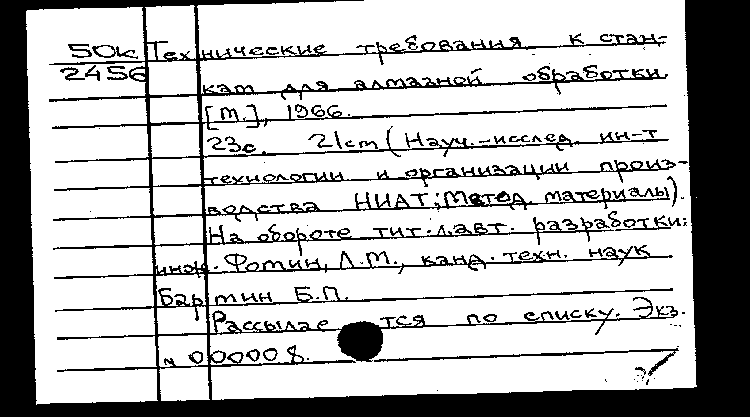 50к Технические требования к стан-
2456 кам для алмазной обработки.
[М.], 1966.
23с. 21cm (Науч.-исслед. ин-т
технологии и организации произ-
водства НИАТ; Метод. материалы).
На обороте тит. л. авт. разработки:
инж. Фотин, Л.М., канд. техн. наук
Бартин Б.П.
Рассылается по списку. Экз.
N 000008.